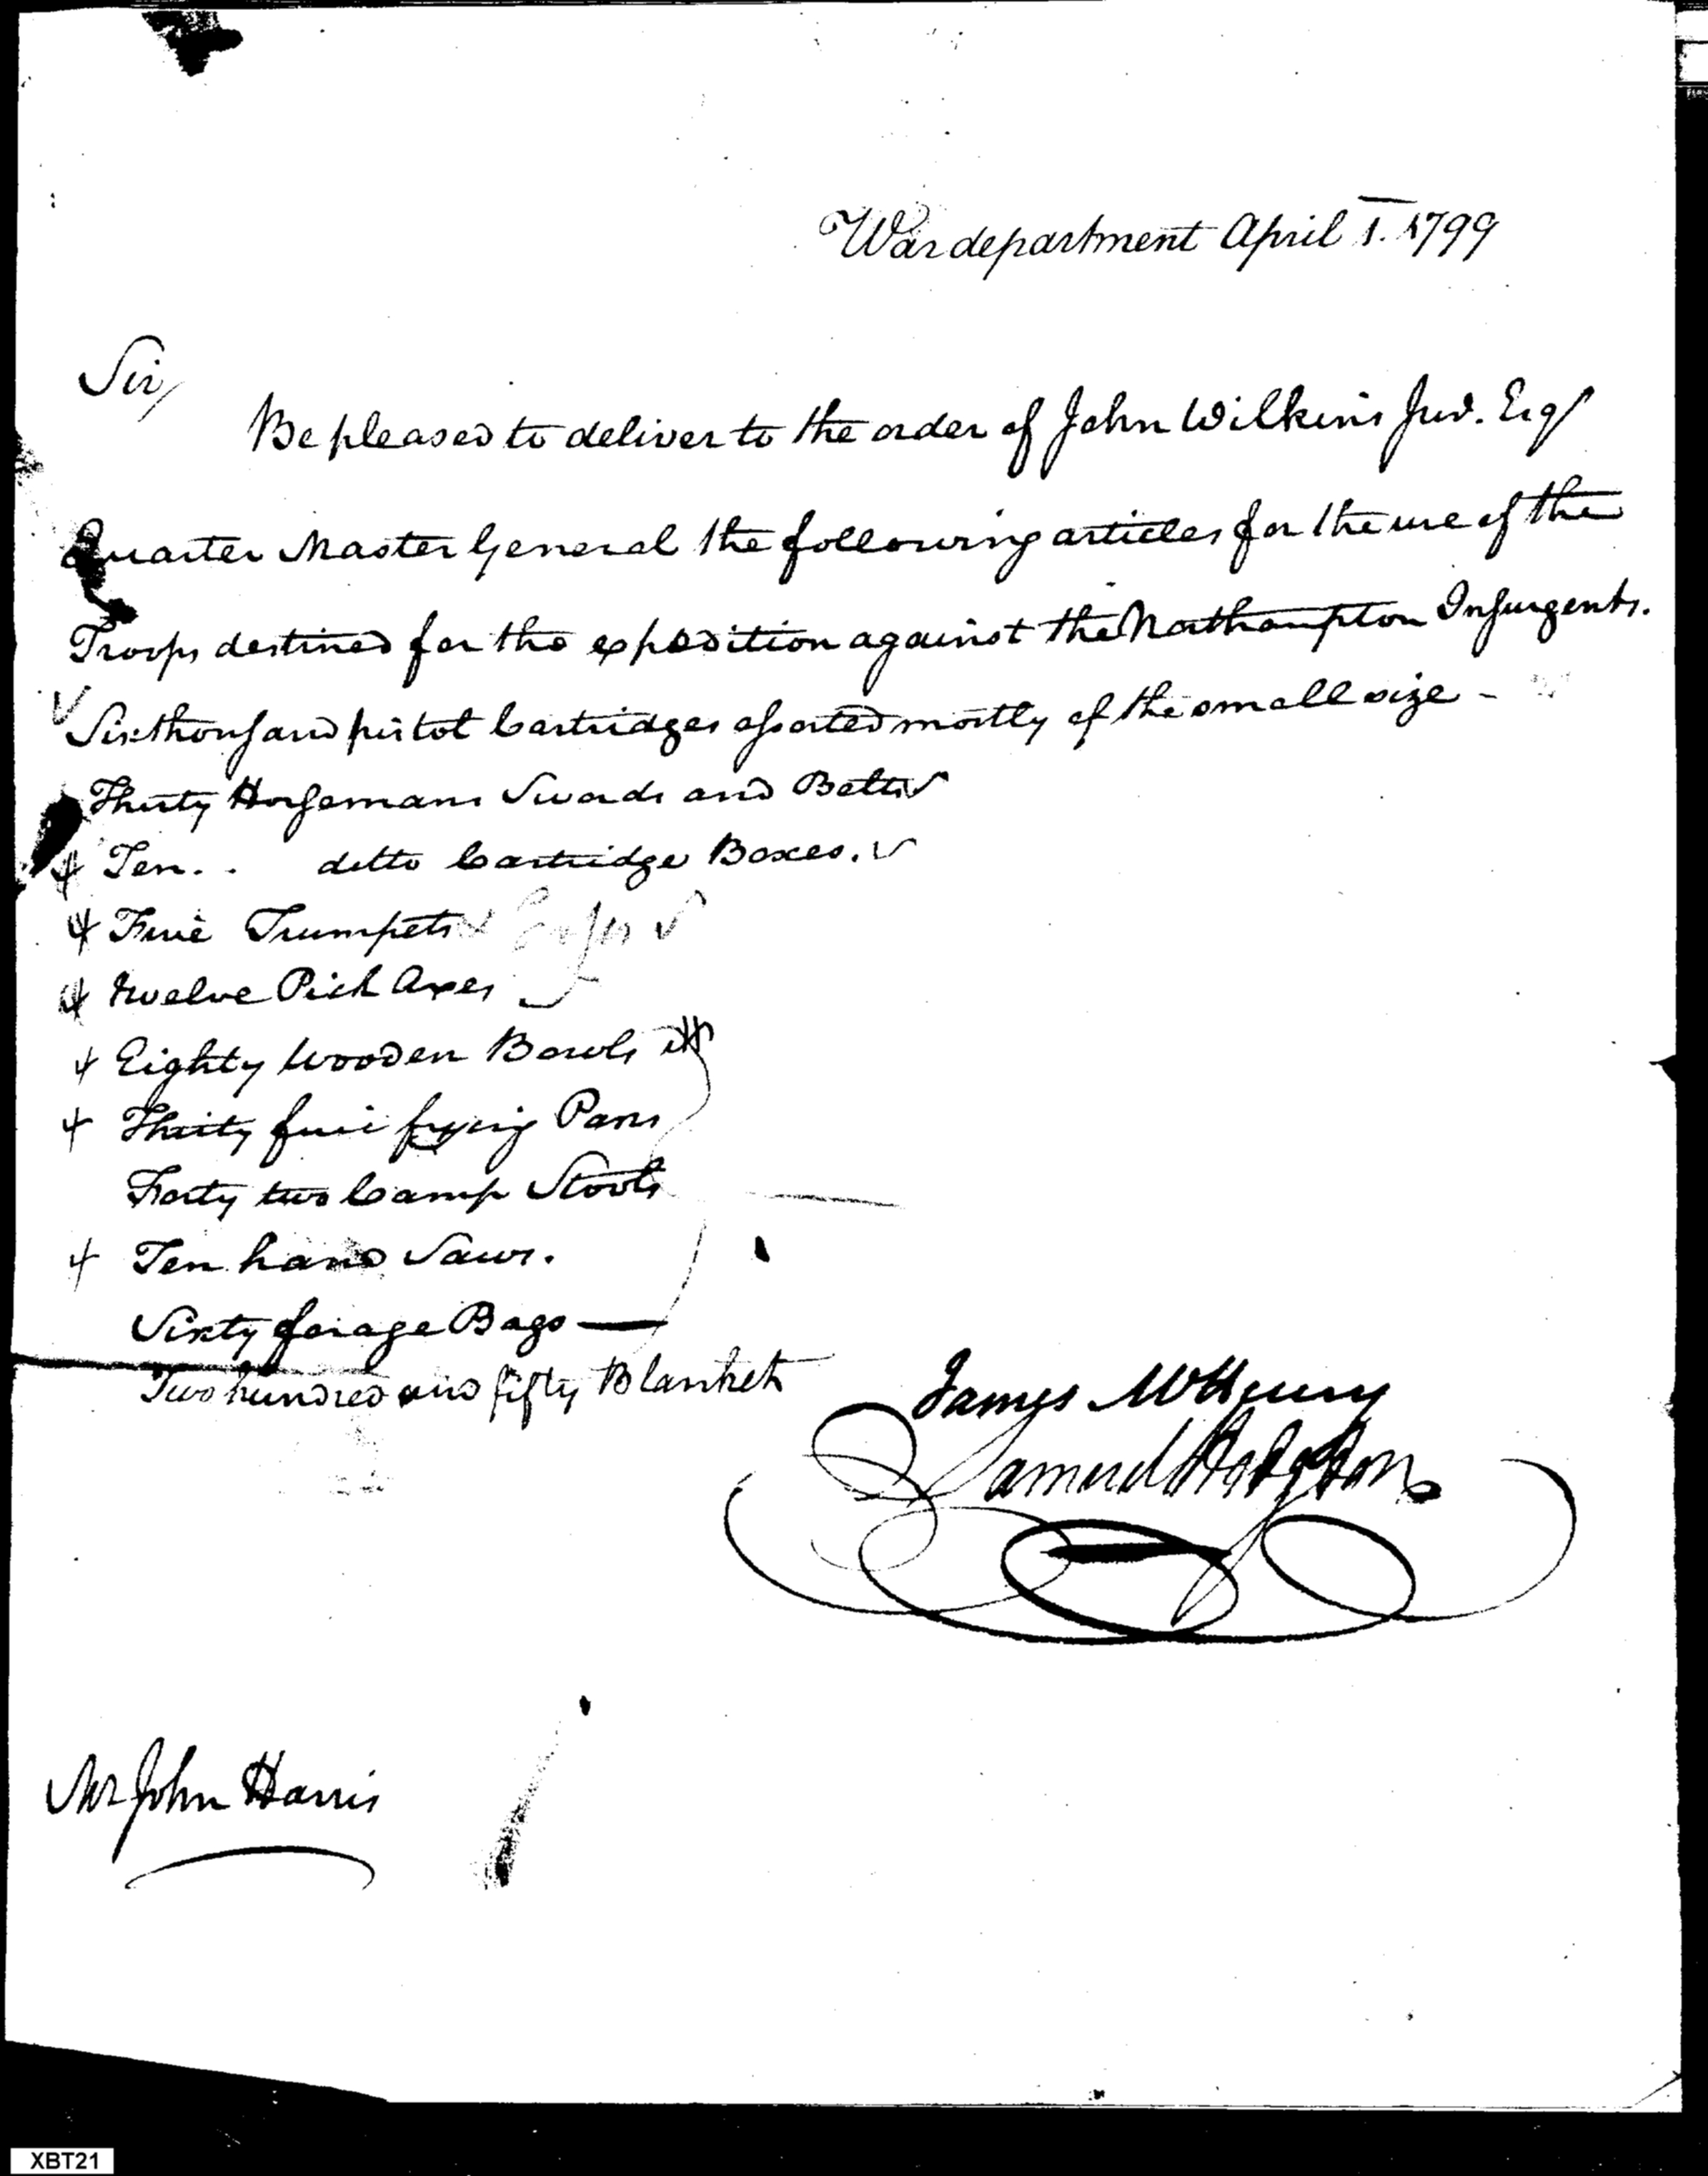 War department April 1. 1799
Sir,
Be pleased to deliver to the order of John Wilkins Junr. Esqr
Quarter Master General the following articles for the use of the
Troops destined for the expedition against the Northampton Insurgents.
Six thousand pistol Cartridges assorted mostly of the small size -
Thirty Horsemans Swords and Belts
Ten.. ditto Cartridge Boxes.
Five Trumpets
twelve Pick Axes
Eighty Wooden Bowls
Thirty five frying Pans
Forty two Camp Stools
Ten hand Saws.
Sixty forage Bags —
Two hundred and fifty Blankets
James McHenry
Samuel Hodgdon
Mr John Harris
XBT21